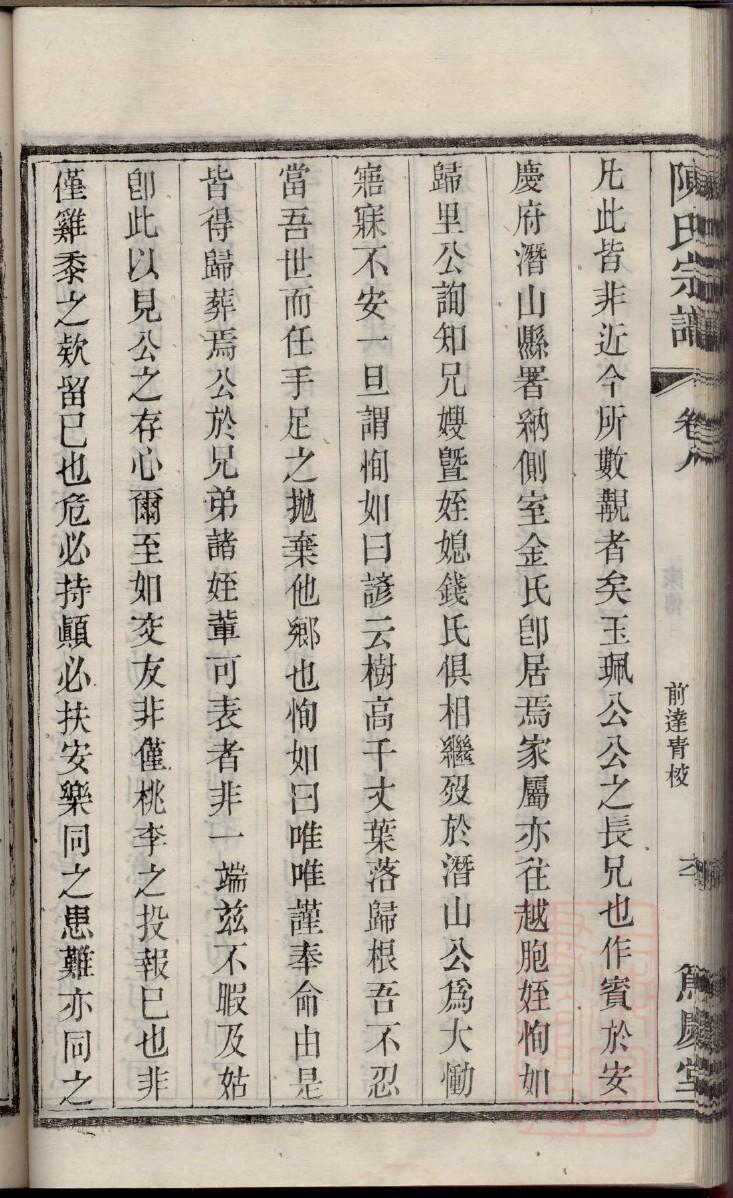 陳氏宗譜 卷八 前達青校 篤慶堂
凡此皆非近今所數覯者矣玉珮公公之長兄也作賓於安
慶府潛山縣署納側室金氏卽居焉家屬亦往越胞姪恂如
歸里公詢知兄嫂曁姪媳錢氏俱相繼歿於潛山公爲大慟
寤寐不安一旦謂恂如曰諺云樹高千丈葉落歸根吾不忍
當吾世而任手足之抛棄他鄉也恂如曰唯唯謹奉命由是
皆得歸葬焉公於兄弟諸姪輩可表者非一端茲不暇及姑
卽此以見公之存心爾至如交友非僅桃李之投報已也非
僅雞黍之欵留已也危必持顚必扶安樂同之患難亦同之